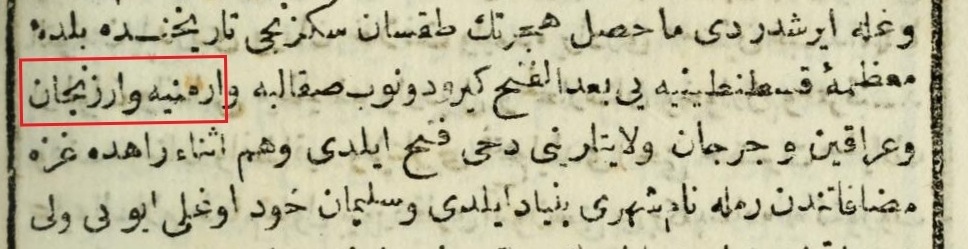 وغله ایرشدردی ماحصل هجرتك طقسان سکزنجی تاریخنده بلدهٔ
معظمهٔ قسطنطینیه یی بعدالفتح کیرودونوب صقالبه وارمنیه وارزنجان
وعراقین و جرجان ولایتلرینی دخی فتح ایلدی وهم اثناء راهده غزه
مضافاتندن رمله نام شهری بنیاد ایلدی وسلیمان خود اوغلی ایوبی ولی